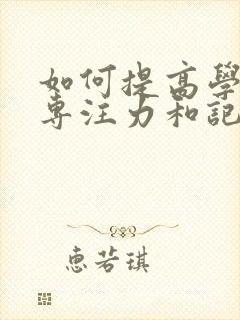 如何提高學
專注力和記
惠若琪